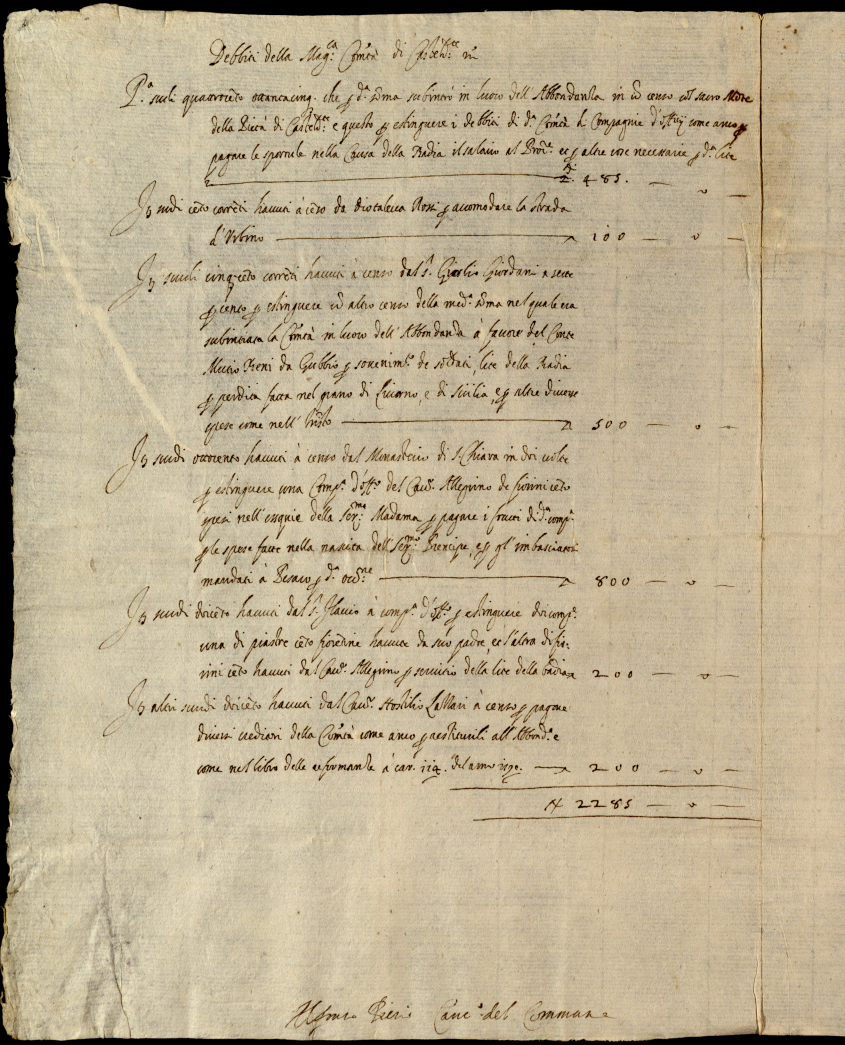 Debbiti della Mag:ca Com.tà di Castel
P.a scudi quattrocento ottantacinq. che p d.a soma subintrò in luoco dell'Abbondanza in censo col sacro Mote
della Pietà di e questo p estinguere i debbiti di d.a Com.tà di Compagnie d'off.ij come anco p
pagare le sportule nella Causa della Badia il salario al Proc.re et p altre cose necessarie p d.a lite
485. — 0 —
It scudi ceto correti havuti à ceso da Diotaleva Rosi p accomodare la strada
d'Urbino — 100 — 0 —
It scudi cinqceto correti havuti à censo dal S.r Giulio Giordani a sette
p cento p estinguere altro censo della med.a soma nel quale era
subintrata la Com.tà in luoco dell'Abbondanza à favore del Conte
Mutio da Gubbio p sovenim.to de soldati, lite della Badia
p perdita fatta nel grano di Livorno, e di Sicilia, et p altre diverse
spese come nell' — 500 — 0 —
It scudi ottocento havuti à censo dal Monasterio di S. Chiara in doi volte
p estinguere una Comp.a d'off.o del Cav.r Allegrino de fiorini ceto
spesi nell'essequie della Ser.ma Madama p pagare i frutti di d.a comp.a
p le spese fatte nella nascita dell'Ser.mo Prencipe, et p gl'imbasciatori
mandati à Pesaro p d.a occ.ne — 800 — 0 —
It scudi doiceto havuti dal S. Flavio à comp.a d'off.o p estinguere doi comp.e
una di piastre ceto fiorentine havute da suo padre, et l'altra di fio-
rini ceto havuti dal Cav.r Allegrino p servitio della lite della badia 200 — 0 —
It altri scudi doiceto havuti dal Cav.r Hostilio à censo p pagare
diversi creditori della Com.tà come anco p restituirli all'Abbond.a e
come nel libro delle reformanze à car. del anno — 200 — 0 —
2285 — 0 —
Alfonso Pieri Canc.o del Commune